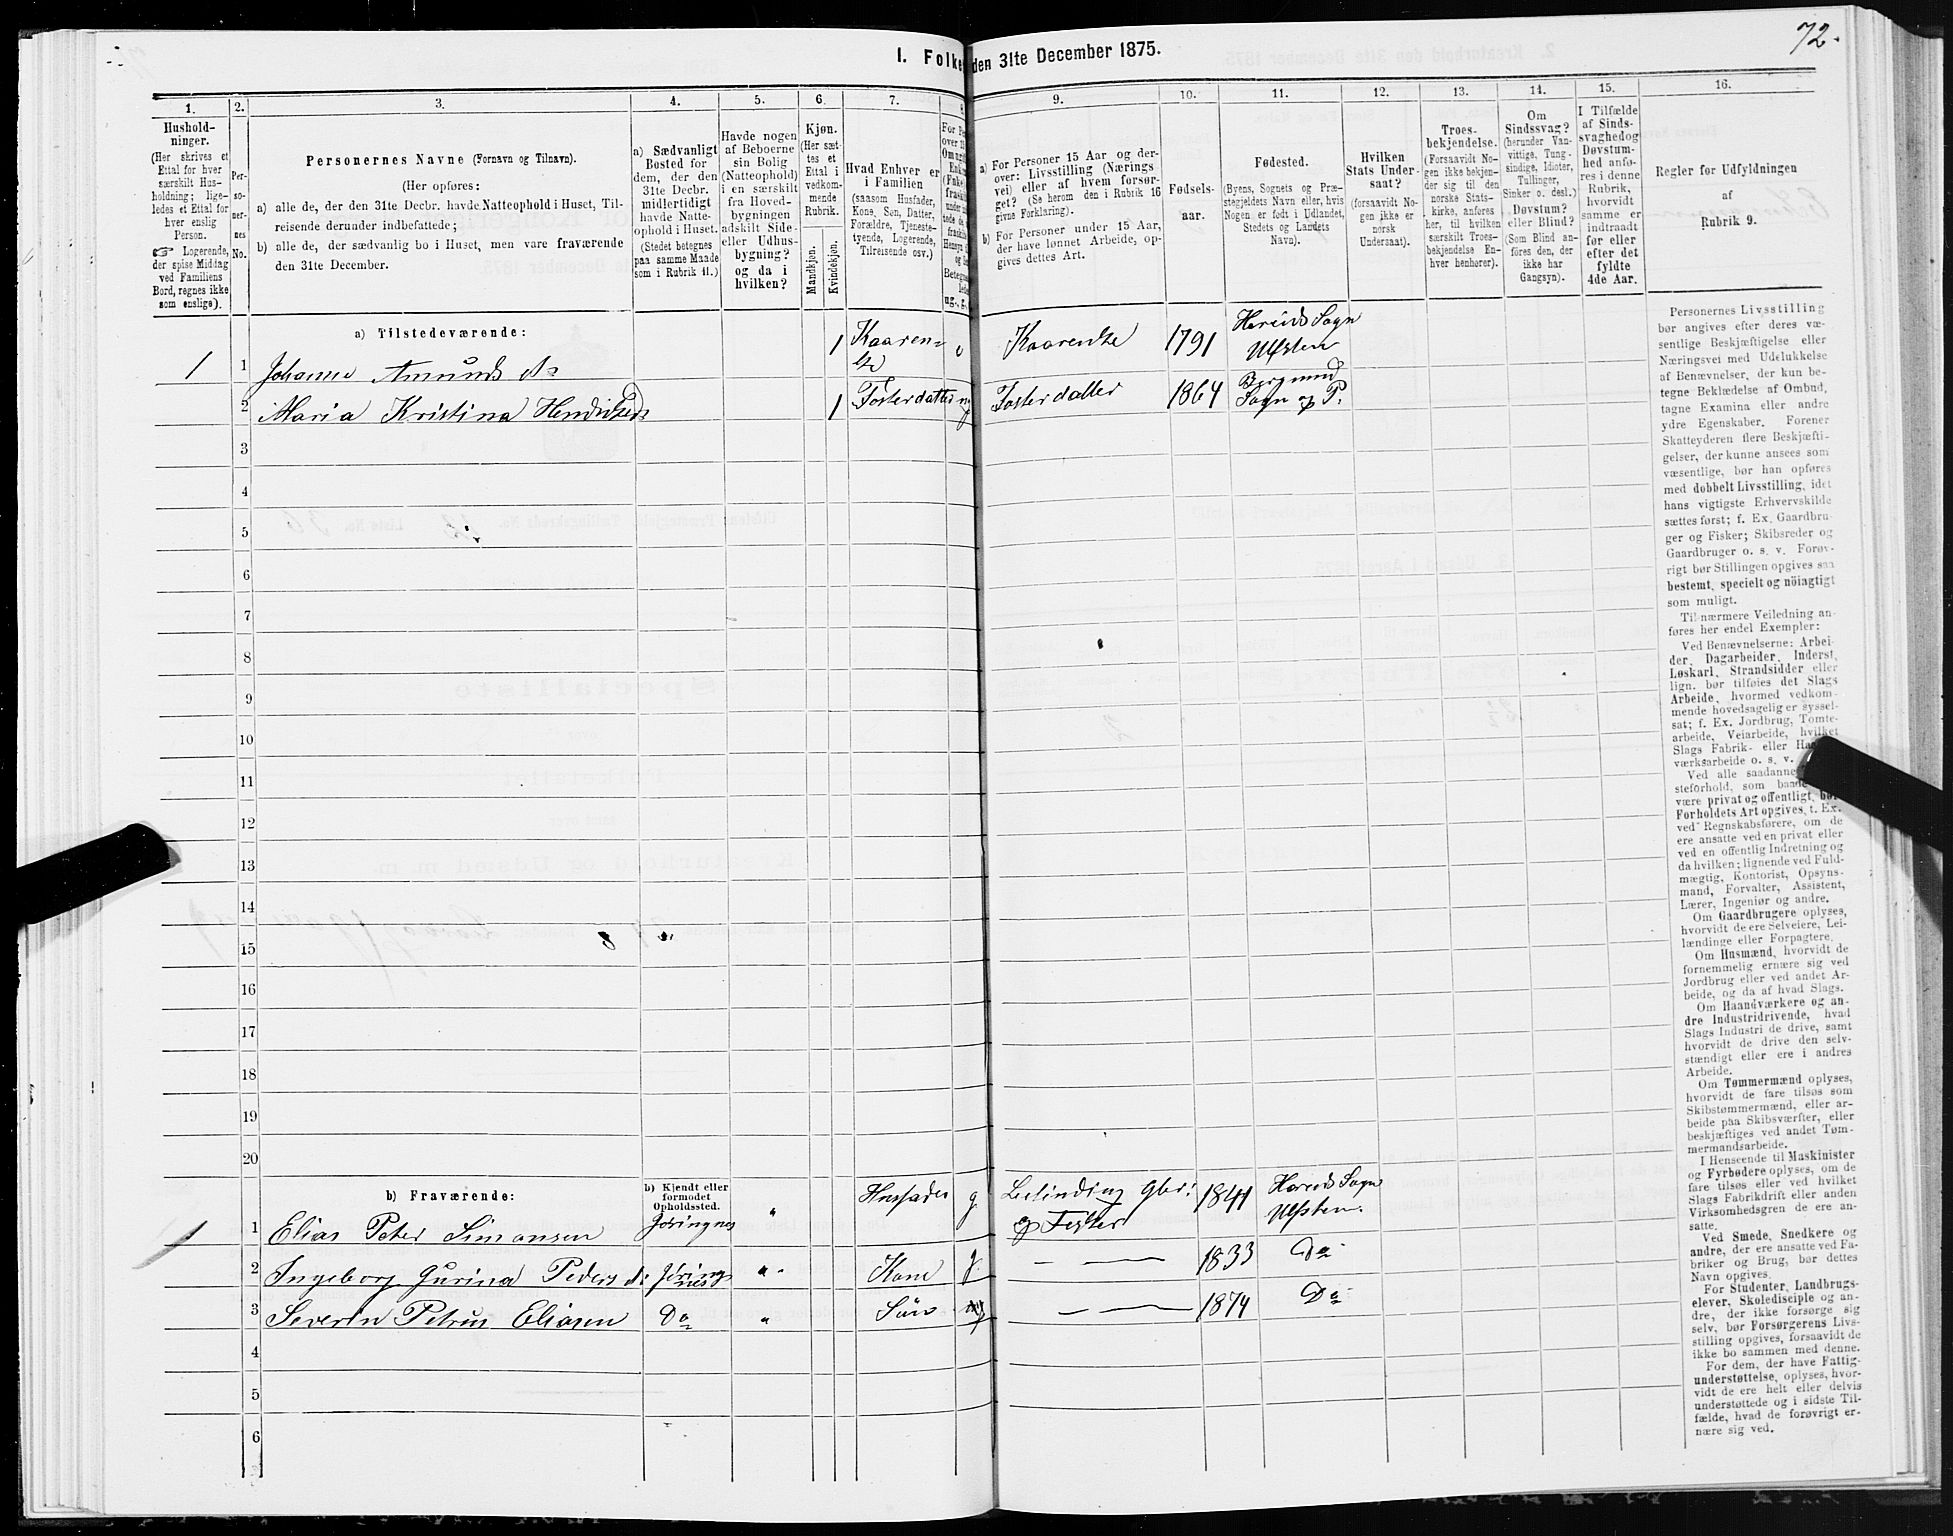 72.
I. Folke den 31te December 1875.
1. 2. 3. 4. 5. 6. 7. 8 9. 10. 11. 12. 13. 14. 15. 16.
Hushold-
ninger.
(Her skrives et
Ettal for hver
særskilt Hus-
holdning; lige-
ledes et Ettal for
hver enslig
Person.
☞ Logerende,
der spise Middag
ved Familiens
Bord, regnes ikke
som enslige).
Per-
so-
ner-
nes
No.
Personernes Navne (Fornavn og Tilnavn).
(Her opføres:
a) alle de, der den 31te Decbr. havde Natteophold i Huset, Til-
reisende derunder indbefattede;
b) alle de, der sædvanlig bo i Huset, men vare fraværende
den 31te December.
a) Sædvanligt
Bosted for
dem, der den
31te Decbr.
midlertidigt
havde Natte-
ophold i Huset.
(Stedet betegnes
paa samme Maade
som i Rubrik 11.)
Havde nogen
af Beboerne
sin Bolig
(Natteophold)
i en særskilt
fra Hoved-
bygningen
adskilt Side-
eller Udhus-
bygning?
og da i
hvilken?
Kjøn.
(Her sæt-
tes et
Ettal i
vedkom-
mende
Rubrik.
Mandkjøn.
Kvindekjøn.
Hvad Enhver er
i Familien
(saasom Husfader,
Kone, Søn, Datter,
Forældre, Tjeneste-
tyende, Logerende,
Tilreisende osv.)
a) For Personer 15 Aar og der-
over: Livsstilling (Nærings
vei) eller af hvem forsør-
get? (Se herom den i Rubrik 16
givne Forklaring).
b) For Personer under 15 Aar,
der have lønnet Arbeide, op-
gives dettes Art.
Fødsels-
aar.
Fødested.
(Byens, Sognets og Præ-
stegjeldets Navn eller, hvis
Nogen er født i Udlandet,
Stedets og Landets
Navn).
Hvilken
Stats Under-
saat?
(forsaavidt No-
gen ikke er
norsk
Undersaat).
Troes-
bekjendelse.
(Forsaavidt No-
gen ikke bekjen-
der sig til den
norske Stats-
kirke, anføres
her, til hvilken
særskilt Troes-
bekjendelse En-
hver henhører).
Om
Sindssvag?
(herunder Van-
vittige, Tung-
sindige, Idioter,
Tullinger,
Sinker o. desl.)
Døvstum?
eller Blind?
(Som Blind an-
føres den, der
ikke har
Gangsyn).
I Tilfælde
af Sinds-
svaghed og
Døvstum-
hed anfø-
res i denne
Rubrik,
hvorvidt
samme er
indtraadt
før eller
efter det
fyldte
4de Aar.
Regler for Udfyldningen
af
Rubrik 9.
a) Tilstedeværende:
1 1 Johanne Amunds d. 1 Kaaren= Kaarenke 1791 Hareids Sogn
Ulfsten
2 Maria Kristina 1 Fosterdatter ug Fosterdatter 1864 Borgund
Sogn og P.
3
4
5
6
7
8
9
10
11
12
13
14
15
16
17
18
19
20
b) Fraværende:
b) Kjendt eller
formodet
Opholdssted.
1 1 Elias Peter Simonsen Jøringnes " Husfader g Leilinding Gbr: 1841 Hareids Sogn
og Fisker Ulfsten.
2 Ingeborg Gurina Peders d. Jøring
nes " Kone g — — 1833 Do
3 Severin Petrus Eliasen Do " Søn ug — — 1874 Do
4
5
6
Personernes Livsstilling
bør angives efter deres væ-
sentlige Beskjæftigelse eller
Næringsvei med Udelukkelse
af Benævnelser, der kun be-
tegne Beklædelse af Ombud,
tagne Examina eller andre
ydre Egenskaber. Forener
Skatteyderen flere Beskjæfti-
gelser, der kunne ansees som
væsentlige, bør han opføres
med dobbelt Livsstilling, idet
hans vigtigste Erhvervskilde
sættes først; f. Ex. Gaardbru-
ger og Fisker; Skibsreder og
Gaardbruger o. s. v. Forøv-
rigt bør Stillingen opgives saa
bestemt, specielt og nöiagtigt
som muligt.
Til nærmere Veiledning an-
føres her endel Exempler:
Ved Benævnelserne: Arbei-
der, Dagarbeider, Inderst,
Løskarl, Strandsidder eller
lign. bør tilføies det Slags
Arbeide, hvormed vedkom-
mende hovedsagelig er syssel-
sat; f. Ex. Jordbrug, Tomte-
arbeide, Veiarbeide, hvilket
Slags Fabrik- eller
værksarbeide o. s. v.
Ved alle saadanne
steforhold, som
være privat og offentligt, bør
Forholdets Art opgives, t. Ex.
ved Regnskabsførere, om de
ere ansatte ved en privat eller
ved en offentlig Indretning og
da hvilken; lignende ved Fuld-
mægtig, Kontorist, Opsyns-
mand, Forvalter, Assistent,
Lærer, Ingeniør og andre.
Om Gaardbrugere oplyses,
hvorvidt de ere Selveiere, Lei-
lændinge eller Forpagtere.
Om Husmænd, hvorvidt de
fornemmelig ernære sig ved
Jordbrug eller ved andet Ar-
beide, og da af hvad Slags.
Om Haandværkere og an-
dre Industridrivende, hvad
Slags Industri de drive, samt
hvorvidt de drive den selv-
stændigt eller ere i andres
Arbeide.
Om Tømmermænd oplyses,
hvorvidt de fare tilsøs som
Skibstømmermænd, eller ar-
beide paa Skibsværfter, eller
beskjæftiges ved andet Tøm-
mermandsarbeide.
I Henseende til Maskinister
og Fyrbødere oplyses, om de
fare tilsøs eller ved hvilket
Slags Fabrikdrift eller anden
Virksomhedsgren de ere an-
satte.
Ved Smede, Snedkere og
andre, der ere ansatte ved Fa-
briker og Brug, bør dettes
Navn opgives.
For Studenter, Landbrugs-
elever, Skoledisciple og an-
dre, der ikke forsørge sig
selv, bør Forsørgerens Livs-
stilling opgives, forsaavidt de
ikke bo sammen med denne.
For dem, der have Fattig-
understøttelse, oplyses, hvor-
vidt de ere helt eller delvis
understøttede og i sidste Til-
fælde, hvad de forøvrigt er-
nære sig ved.